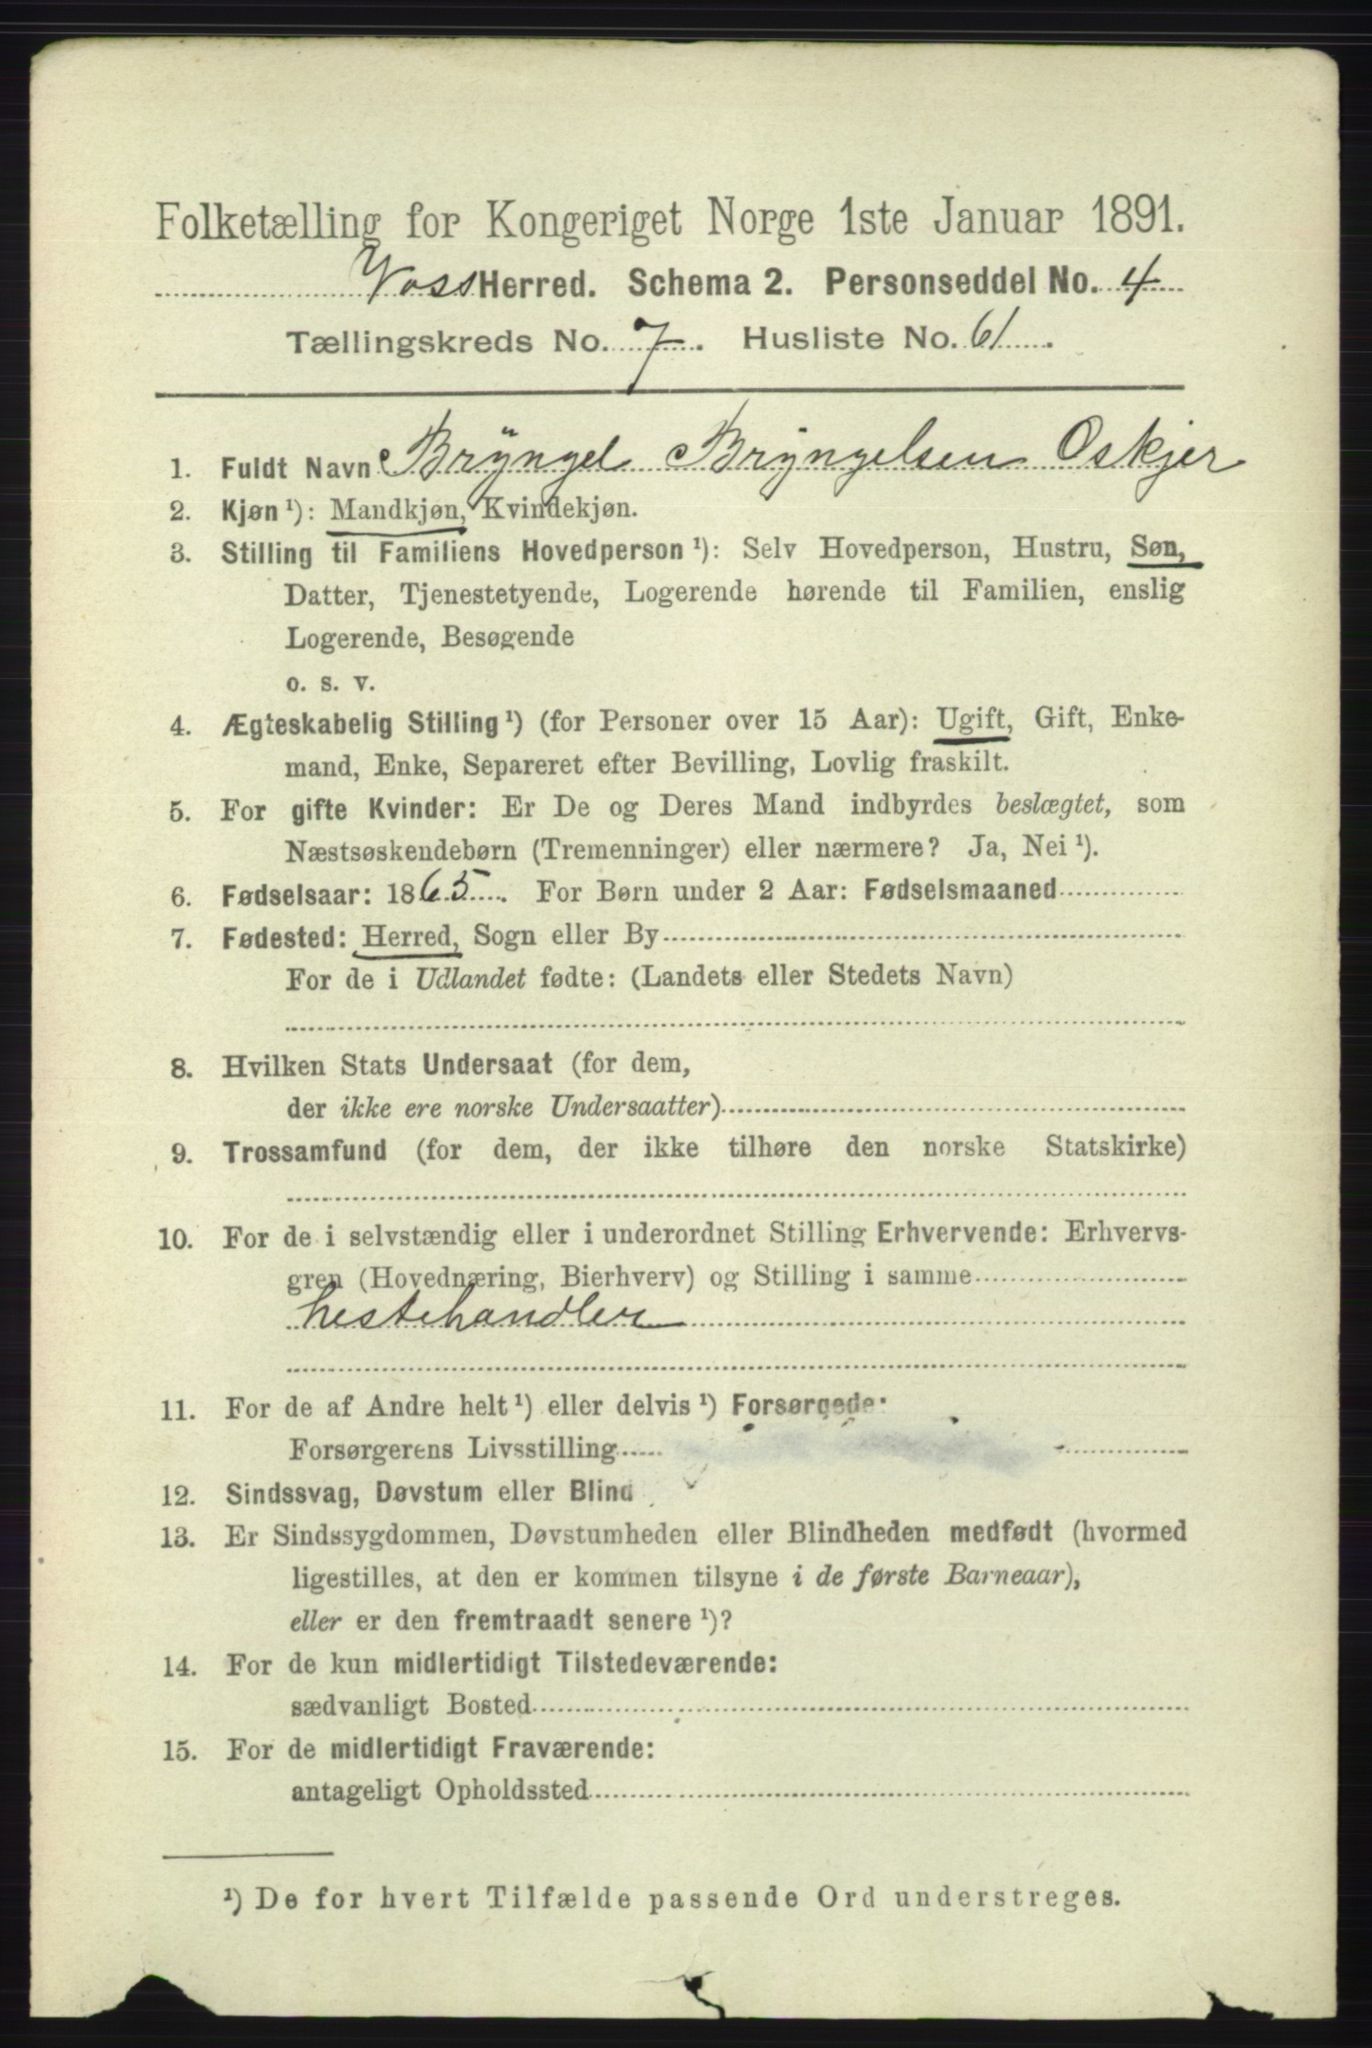 Folketælling for Kongeriget Norge 1ste Januar 1891.
Voss Herred. Schema 2. Personseddel No. 4
Tællingskreds No. 7. Husliste No. 61.
1. Fuldt Navn Brÿngel Brÿngelsen Oskjer
2. Kjøn ¹): Mandkjøn, Kvindekjøn.
3. Stilling til Familiens Hovedperson ¹): Selv Hovedperson, Hustru, Søn,
Datter, Tjenestetyende, Logerende hørende til Familien, enslig
Logerende, Besøgende
o. s. v.
4. Ægteskabelig Stilling ¹) (for Personer over 15 Aar): Ugift, Gift, Enke-
mand, Enke, Separeret efter Bevilling, Lovlig fraskilt.
5. For gifte Kvinder: Er De og Deres Mand indbyrdes beslægtet, som
Næstsøskendebørn (Tremenninger) eller nærmere? Ja, Nei ¹).
6. Fødselsaar: 1865. For Børn under 2 Aar: Fødselsmaaned
7. Fødested: Herred, Sogn eller By
For de i Udlandet fødte: (Landets eller Stedets Navn)
8. Hvilken Stats Undersaat (for dem,
der ikke ere norske Undersaatter)
9. Trossamfund (for dem, der ikke tilhøre den norske Statskirke)
10. For de i selvstændig eller i underordnet Stilling Erhvervende: Erhvervs-
gren (Hovednæring, Bierhverv) og Stilling i samme
hestehandler
11. For de af Andre helt ¹) eller delvis ¹) Forsørgede:
Forsørgerens Livsstilling
12. Sindssvag, Døvstum eller Blind
13. Er Sindssygdommen, Døvstumheden eller Blindheden medfødt (hvormed
ligestilles, at den er kommen tilsyne i de første Barneaar),
eller er den fremtraadt senere ¹)?
14. For de kun midlertidigt Tilstedeværende:
sædvanligt Bosted
15. For de midlertidigt Fraværende:
antageligt Opholdssted
¹) De for hvert Tilfælde passende Ord understreges.